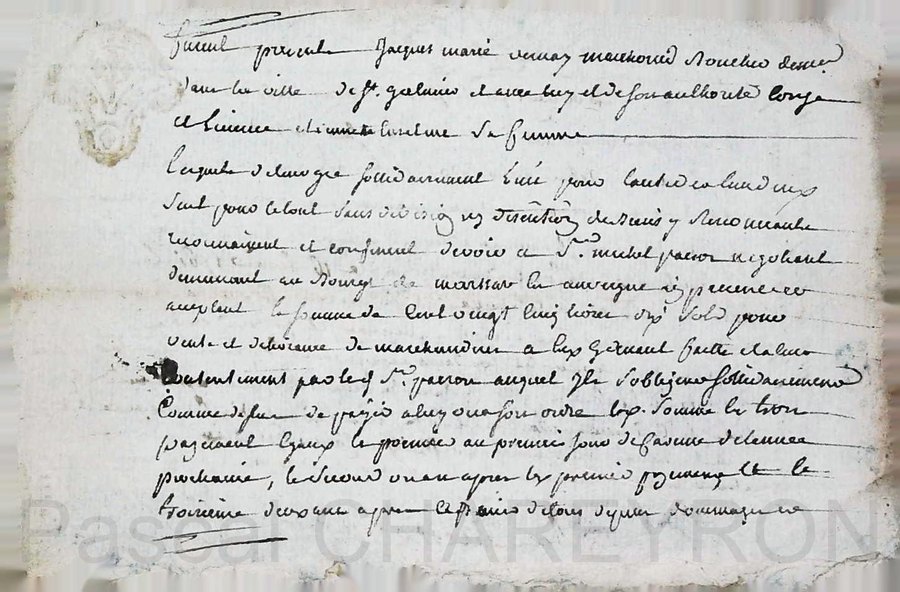 furent presents Jacques marie vernay marchand Boucher demt
dans la ville de St. galmier et avec luy et de son authorité Conge
et Licence etiennete sa femme
Lesquels de leur gre sollidairement L'un pour l'autre et un deux
seul pour le tout sans division ny discution de biens y Renonceants
reconnaissent et confessent devoir a Sr. michel parrot negotiant
demeurant au Bourg de marsac En auvergne icy present et
acceptant la somme de Cent vingt Cinq livres dix sols pour
vente et delivrance de marchandises a eux Cy devant faitte et a leur
Contentement par led. Sr. parrot auquel Ils s'obligent sollidairement
Comme dessus de payer a luy ou a son ordre lad. Somme En trois
payements Egaux le premier au premier jour de Careme de l'année
prochaine, le second un an apres le premier payement, Et le
troisieme deux ans apres le a peine de tous depens dommages et
Pascal CHAREYRON